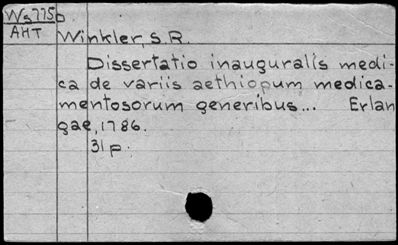 Ws775
AHT
Winkler, S. R.
Dissertatio inauguralis medi-
ca de variis aethiopum medica-
mentosorum generibus... Erlan
gae, 1786.
31 p.